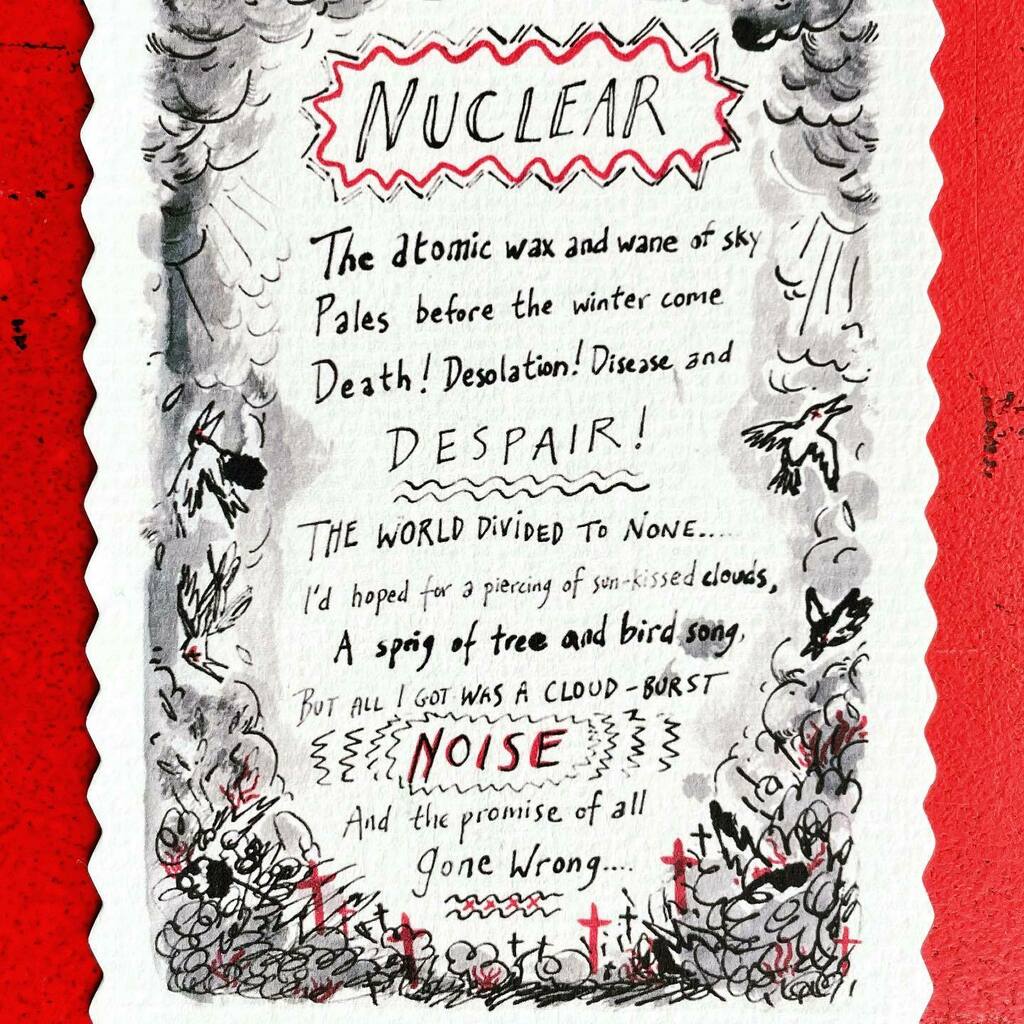 NUCLEAR
The atomic wax and wane of sky
Pales before the winter come
Death! Desolation! Disease and
DESPAIR!
THE WORLD DIVIDED TO NONE.....
I'd hoped for a piercing of sun-kissed clouds,
A sprig of tree and bird song,
BUT ALL I GOT WAS A CLOUD-BURST
NOISE
And the promise of all
gone Wrong....